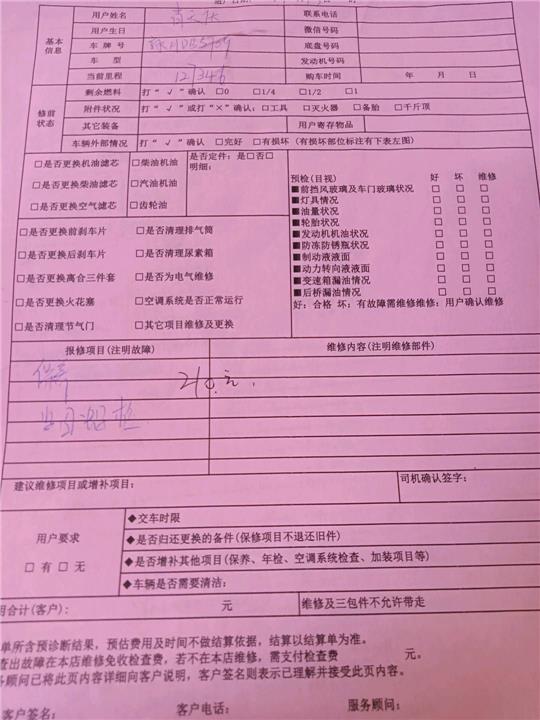 基本信息
用户姓名 联系电话
用户生日 微信号码
车牌号 底盘号码
车 型 发动机号码
当前里程 12346 购车时间 年 月 日
修前状态
剩余燃料 打“√”确认 □0 □1/4 □1/2 □1
附件状况 打“√”或打“×”确认:□工具 □灭火器 □备胎 □千斤顶
其它装备 用户寄存物品
车辆外部情况 打“√”确认 □完好 □有损坏(有损坏部位标注有下表左图)
□是否更换机油滤芯 □柴油机油 是否定件:是□否□
明细:
□是否更换柴油滤芯 □汽油机油
□是否更换空气滤芯 □齿轮油
预检(目视) 好 坏 维修
■前挡风玻璃及车门玻璃状况 □ □ □
■灯具情况 □ □ □
■油量状况 □ □ □
■轮胎状况 □ □ □
■发动机机油状况 □ □ □
■防冻防锈瓶状况 □ □ □
■制动液液面 □ □ □
■动力转向液液面 □ □ □
■变速箱漏油情况 □ □ □
■后桥漏油情况 □ □ □
好:合格 坏:有故障需维修维修:用户确认维修
□是否更换前刹车片 □是否清理排气筒
□是否更换后刹车片 □是否清理尿素箱
□是否更换离合三件套 □是否为电气维修
□是否更换火花塞 □空调系统是否正常运行
□是否清理节气门 □其它项目维修及更换
报修项目(注明故障) 维修内容(注明维修部件)
保养 210元.
建议维修项目或增补项目: 司机确认签字:
用户要求
□有□无
◆交车时限
◆是否归还更换的备件(保修项目不退还旧件)
◆是否增补其他项目(保养、年检、空调系统检查、加装项目等)
◆车辆是否需要清洁:
用合计(客户): 元 维修及三包件不允许带走
单所含预诊断结果,预估费用及时间不做结算依据,结算以结算单为准。
查出故障在本店维修免收检查费,若不在本店维修,需支付检查费 元。
务顾问已将此页内容详细向客户说明,客户签名则表示已理解并接受此页内容。
客户签名: 客户电话: 服务顾问: